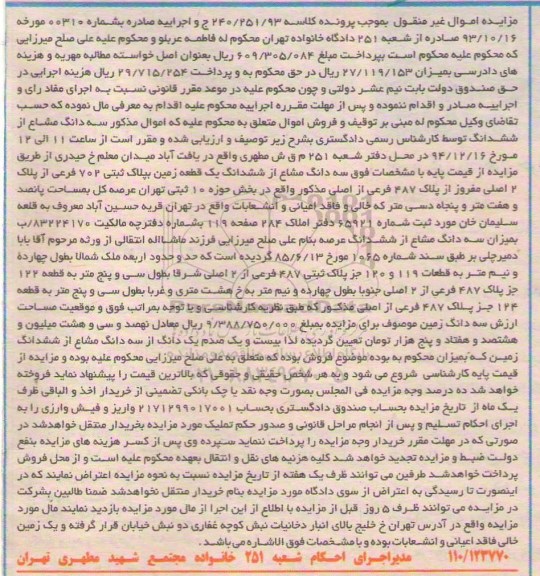 مزایده اموال غیر منقول بموجب پرونده کلاسه ۲۴۰/۲۵۱/۹۳ ج و اجراییه صادره بشماره ۰۰۳۱۰ مورخه
۹۳/۱۰/۱۶ صادره از شعبه ۲۵۱ دادگاه خانواده تهران محکوم له فاطمه عربلو و محکوم علیه علی صلح میرزایی
که محکوم علیه محکوم است بپرداخت مبلغ ۶۰۹/۳۰۵/۰۸۴ ریال بعنوان اصل خواسته مطالبه مهریه و هزینه
های دادرسی بمیزان ۲۷/۱۱۹/۱۵۳ ریال در حق محکوم به و پرداخت ۲۹/۷۱۵/۲۵۴ ریال هزینه اجرایی در
حق صندوق دولت بابت نیم عشر دولتی و چون محکوم علیه در موعد مقرر قانونی نسبت به اجرای مفاد رای و
اجراییه صادر و اقدام ننموده و پس از مهلت مقرره اجراییه محکوم علیه اقدام به معرفی مال ننموده که حسب
تقاضای وکیل محکوم له مبنی بر توقیف و فروش اموال متعلق به محکوم علیه که اموال مذکور سه دانگ مشاع از
ششدانگ توسط کارشناس رسمی دادگستری بشرح زیر توصیف و ارزیابی شده و مقرر است از ساعت ۱۱ الی ۱۲
مورخ ۹۴/۱۲/۱۶ در محل دفتر شعبه ۲۵۱ م ق ش مطهری واقع در یافت آباد میدان معلم خ حیدری از طریق
مزایده از قیمت پایه با مشخصات فوق سه دانگ مشاع از ششدانگ یک قطعه زمین بپلاک ثبتی ۷۰۲ فرعی از پلاک
۲ اصلی مفروز از پلاک ۴۸۷ فرعی از اصلی مذکور واقع در بخش حوزه ۱۰ ثبتی تهران عرصه کل بمساحت پانصد
و هفت متر و پنجاه دسی متر که خالی و فاقد اعیانی و انشعابات واقع در تهران قریه حسین آباد معروف به قلعه
سلیمان خان مورد ثبت شماره ۶۵۹۲۱ دفتر املاک ۲۸۴ صفحه ۱۱۹ بشماره دفترچه مالکیت ۸۳۲۲۴۱۷۰/ب
بمیزان سه دانگ مشاع از ششدانگ عرصه بنام علی صلح میرزایی فرزند ماشااله انتقالی از ورثه مرحوم آقا بابا
دمیرچلی بر طبق سند شماره ۱۰۶۵ مورخ ۸۵/۶/۱۳ گردیده است که حد و حدود اربعه ملک شمالا بطول چهارده
و نیم متر به قطعات ۱۱۹ و ۱۲۰ جز پلاک ثبتی ۴۸۷ فرعی از ۲ اصلی شرقا بطول سی و پنج متر به قطعه ۱۲۲
جز پلاک ۴۸۷ فرعی از ۲ اصلی جنوبا بطول چهارده و نیم متر به خ هشت متری و غربا بطول سی و پنج متر به قطعه
۱۲۴ جز پلاک ۴۸۷ فرعی از اصلی مذکور که طبق نظریه کارشناسی و با توجه بمراتب فوق و موقعیت مساحت
ارزش سه دانگ زمین موصوف برای مزایده بمبلغ ۹/۳۸۸/۷۵۰/۰۰۰ ریال معادل نهصد و سی و هشت میلیون و
هشتصد و هفتاد و پنج هزار تومان تعیین گردیده لذا بیست و یک صدم یک دانگ از سه دانگ مشاع از ششدانگ
زمین که بمیزان محکوم به بوده موضوع فروش بوده که متعلق به علی صلح میرزایی محکوم علیه بوده و مزایده از
قیمت پایه کارشناسی شروع می شود و به هر شخص حقیقی و حقوقی که بالاترین قیمت را پیشنهاد نماید فروخته
خواهد شد ده درصد وجه مزایده فی المجلس بصورت وجه نقد یا چک بانکی تضمینی از خریدار اخذ و الباقی ظرف
یک ماه از تاریخ مزایده بحساب صندوق دادگستری بحساب ۲۱۷۱۲۹۹۰۱۷۰۰۱ واریز و فیش واریزی را به
اجرای احکام تسلیم و پس از انجام مراحل قانونی و صدور حکم تملیک مورد مزایده بخریدار منتقل خواهدشد در
صورتی که در مهلت مقرر خریدار وجه مزایده را پرداخت ننماید سپرده وی پس از کسر هزینه های مزایده بنفع
دولت ضبط و مزایده تجدید خواهد شد کلیه هزینه های نقل و انتقال بعهده محکوم علیه است و از محل فروش
پرداخت خواهدشد طرفین می توانند ظرف یک هفته از تاریخ مزایده نسبت به نحوه مزایده اعتراض نمایند که در
اینصورت تا رسیدگی به اعتراض از سوی دادگاه مورد مزایده بنام خریدار منتقل نخواهدشد ضمنا طالبین بشرکت
در مزایده می توانند ظرف ۵ روز قبل از مزایده با اطلاع از این اجرا از مال مورد مزایده بازدید نمایند مال مورد
مزایده واقع در آدرس تهران خ خلیج بالای انبار دخانیات نبش کوچه غفاری دو نبش خیابان قرار گرفته و یک زمین
خالی فاقد اعیانی و انشعابات بوده و با مشخصات فوق الاشاره می باشد.
۱۱۰/۱۲۳۷۷۰ مدیراجرای احکام شعبه ۲۵۱ خانواده مجتمع شهید مطهری تهران